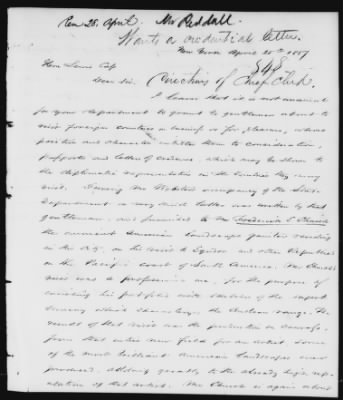 Rec 28. April. Mr Riddall.
Wants a credential letter.
New York April 25th 1857
Hon Lewis Cass
Dear Sir. Directions of Chief Clerk.
I learn that it is not unusual
for your Department to grant to gentlemen about to
visit foreign countries on business or for pleasure, whose
position and character entitles them to consideration,
passports and letters of credence, which may be shown to
the diplomatic representatives in the countries they may
visit. During Mr Websters occupancy of the State
Department a very kind letter was written by that
gentleman and furnished to Mr Frederick E Church
the eminent American Landscape painter residing
in this City, on his visit to Equador and other Republics
on the Pacific coast of South America. Mr Church's
visit was a professional one, for the purpose of
enriching his portfolio with sketches of the superb
scenery which characterizes the Andean range. The
results of that visit was the production on canvass,
from that entire new field for an artist some
of the most brilliant American Landscapes ever
produced, adding greatly to the already high repu-
tation of that artist. Mr Church is again about